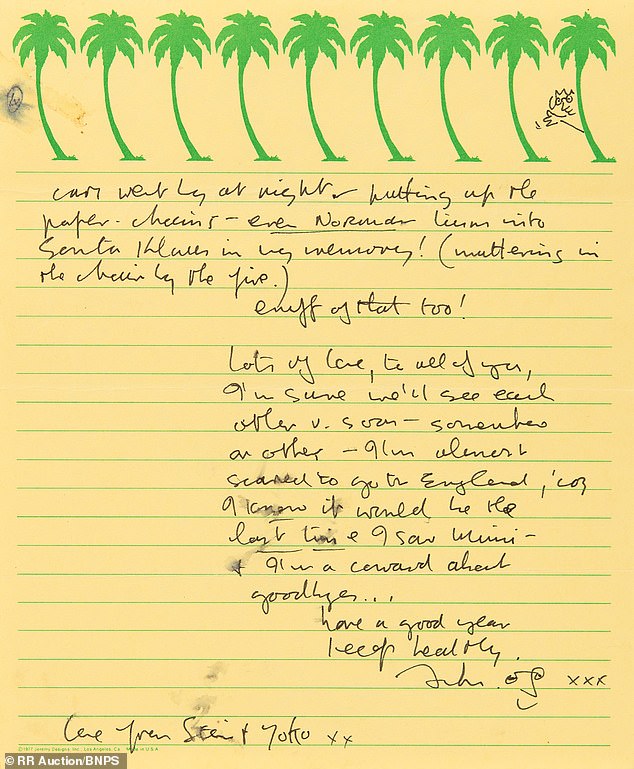 4
cars went by at night & putting up the
paper-chains - even Norman turns into
Santa Klaus in my memory! (muttering in
the chair by the fire.)
enuff of that too!
Lots of love, to all of you,
I'm sure we'll see each
other v. soon - somewhere
or other - I'm almost
scared to go to England, 'cos
I know it would be the
last time I saw Mimi -
& I'm a coward about
goodbyes...
have a good year
keep healthy.
John. xxx
love from Sean & Yoko xx
©1977 Jeremy Designs, Inc., Los Angeles, Ca. Made in U.S.A
© RR Auction/BNPS